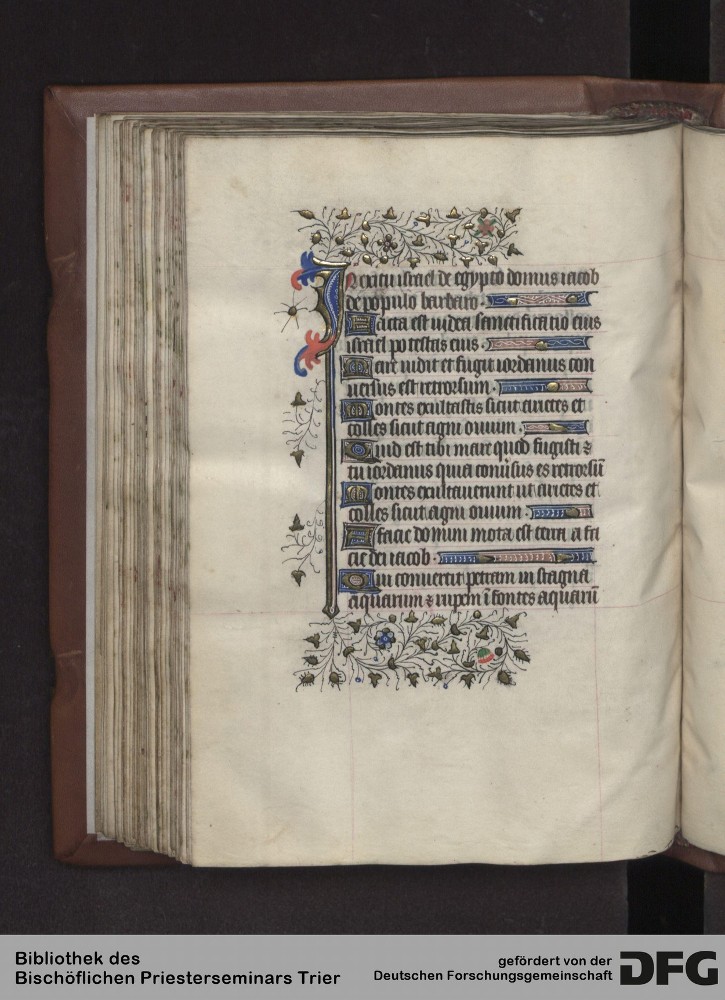 In exitu israel de egypto domus iacob
de populo barbaro.
Facta est iudea sanctificatio eius
israel potestas eius.
Mare uidit et fugit iordanus con
uersus est retrorsum.
Montes exultastis sicut arietes et
colles sicut agni ouium.
Quid est tibi mare quod fugisti &
tu iordanus quia conuersus es retrorsū
Montes exultauerunt ut arietes et
colles sicut agni ouium.
A facie domini mota est terra a fa
cie dei iacob.
Qui conuertit petram in stagna
aquarum & rupem ī fontes aquarū
Bibliothek des
Bischöflichen Priesterseminars Trier
gefördert von der
Deutschen Forschungsgemeinschaft
DFG